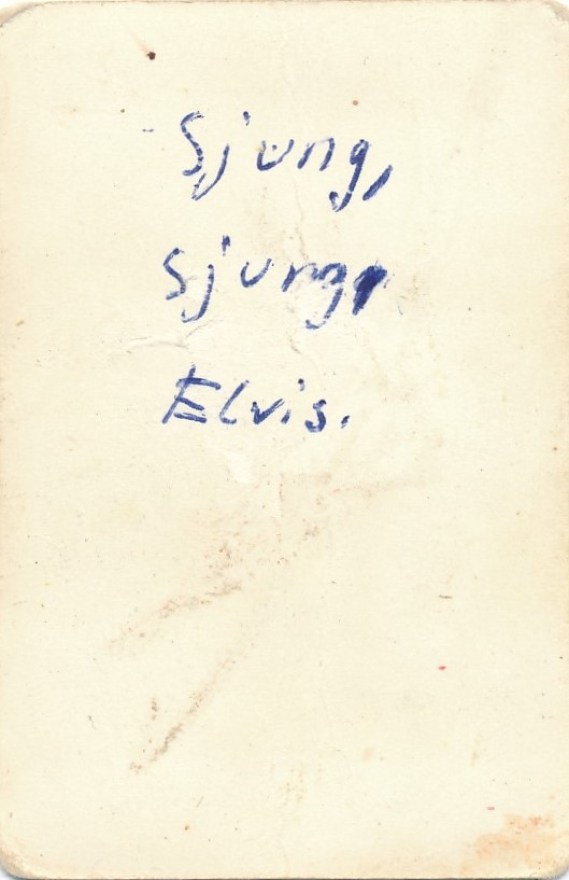 Sjung,
Sjung,
Elvis.